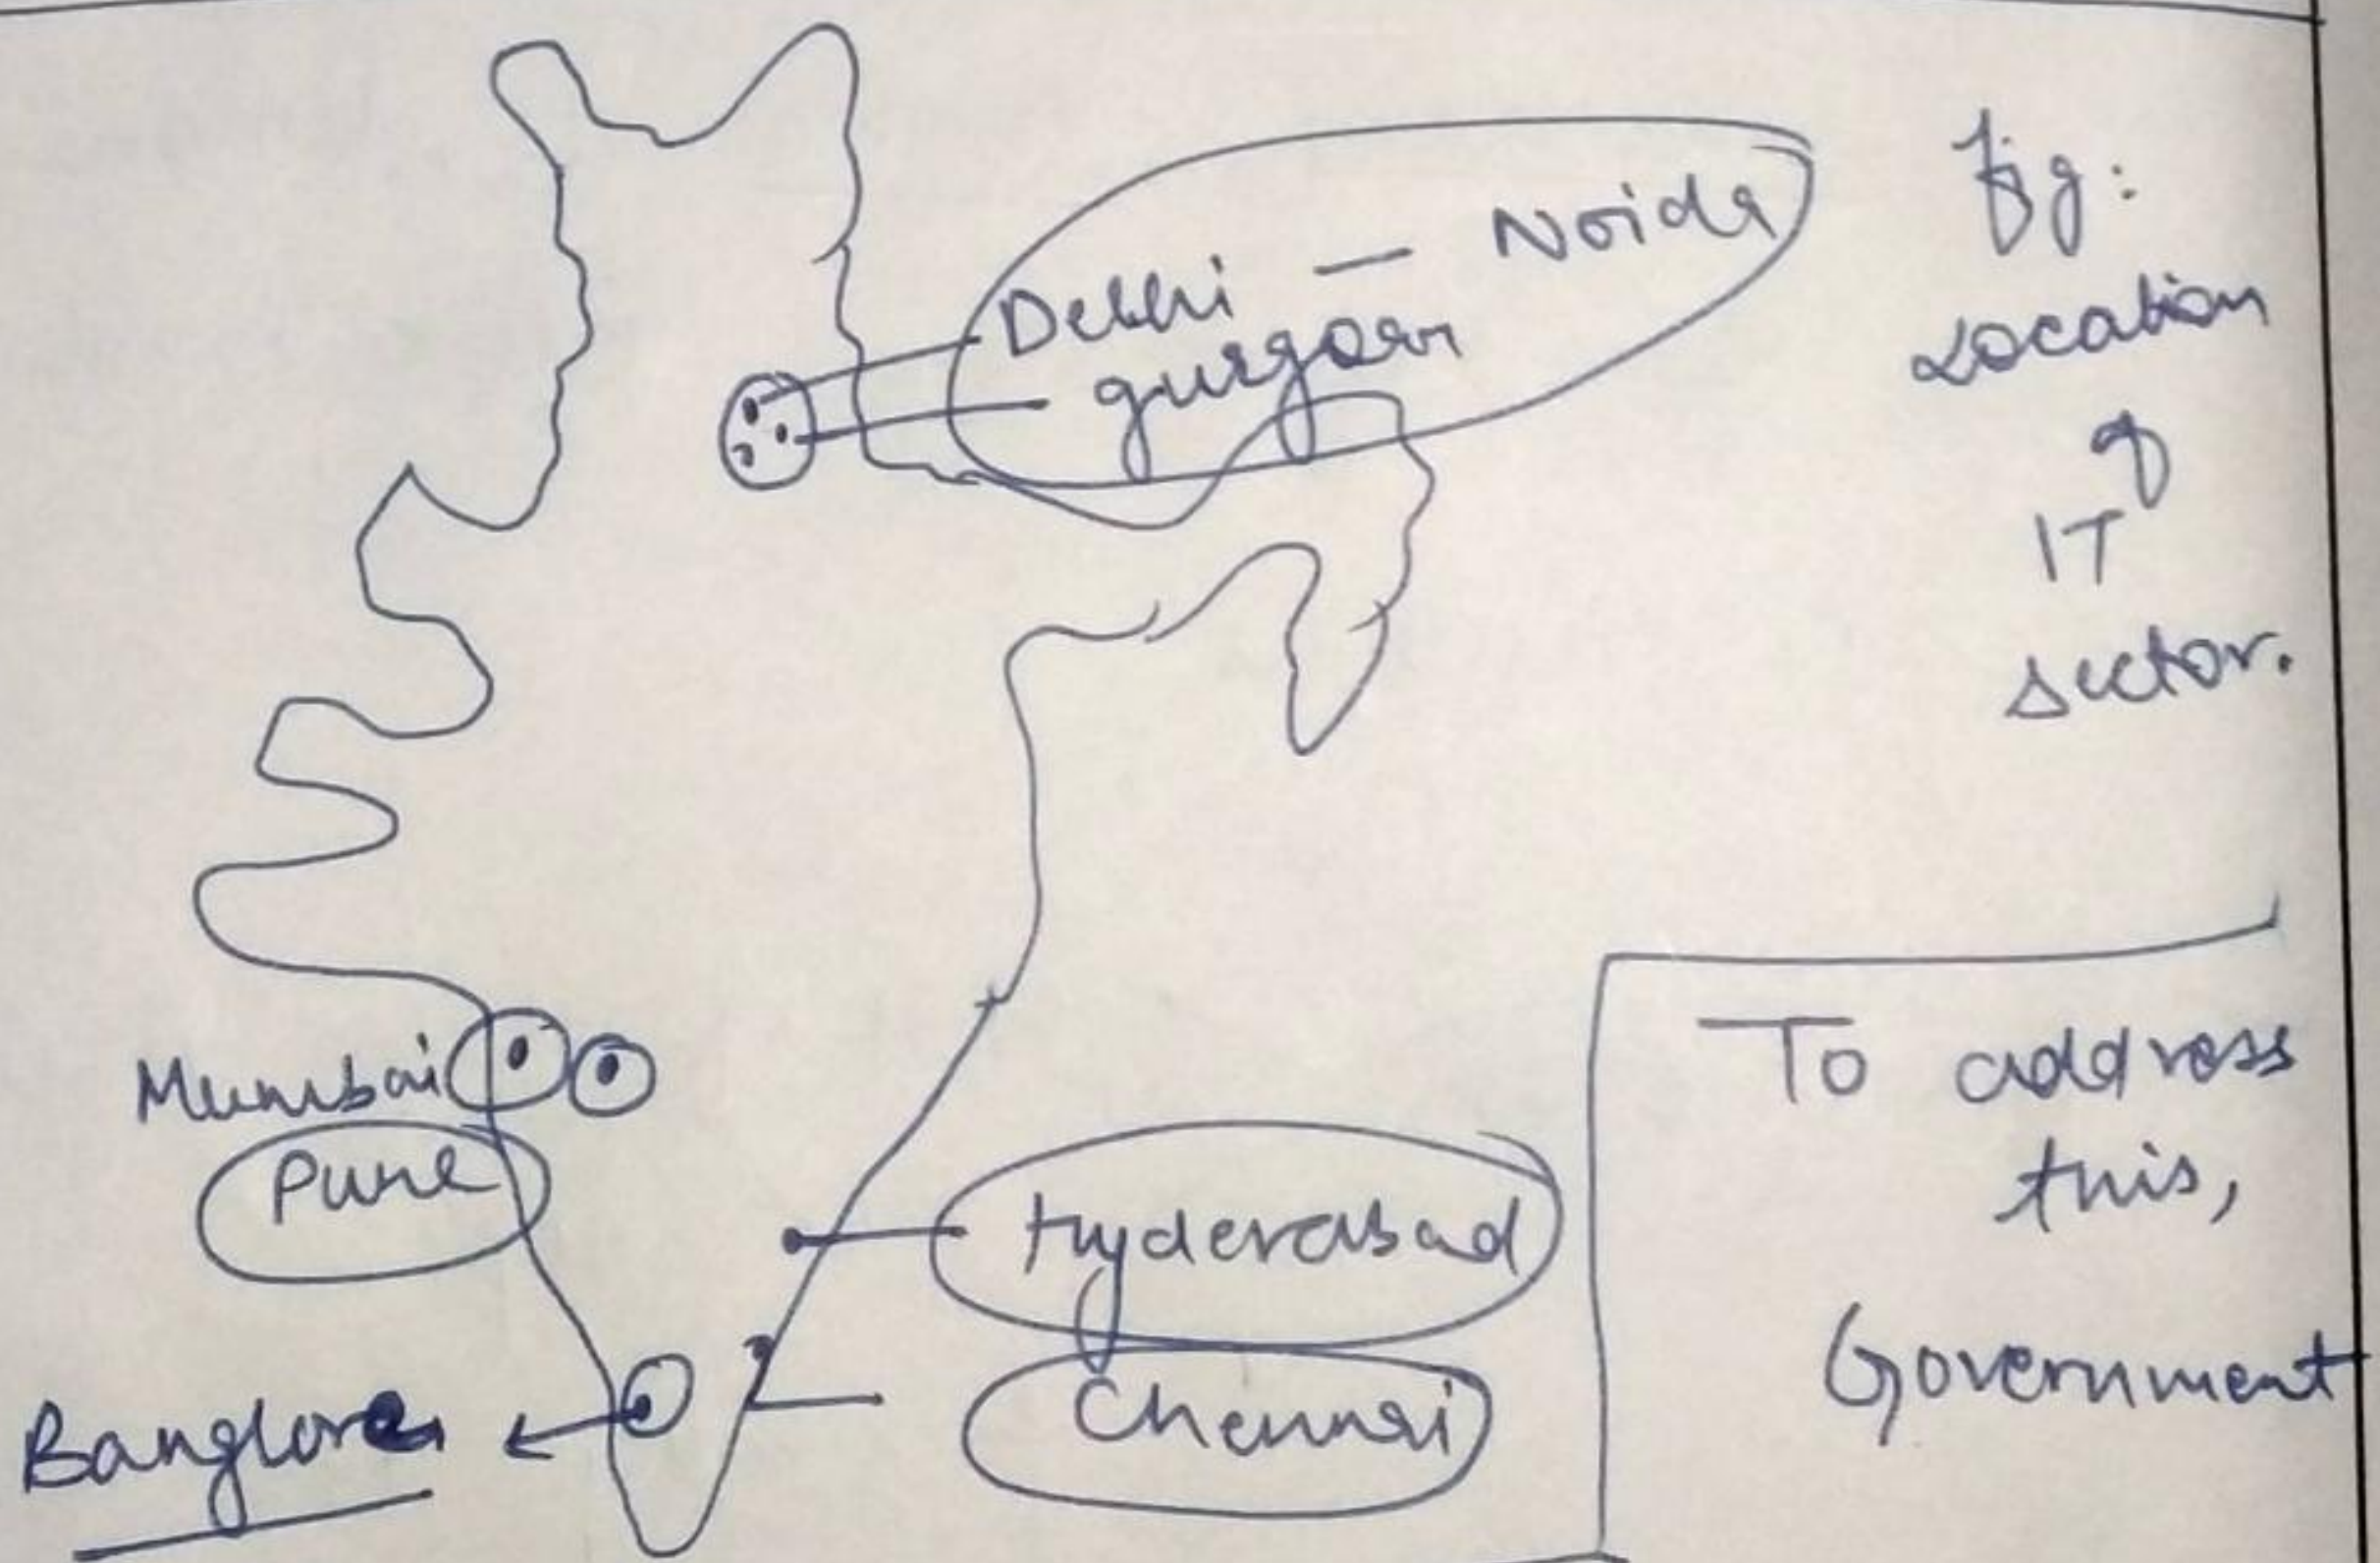 Delhi — Noida
gurgaon
Fig:
Location
of
IT
sector.
Mumbai
Pune
Hyderabad
Chennai
Banglore
To address
this,
Government